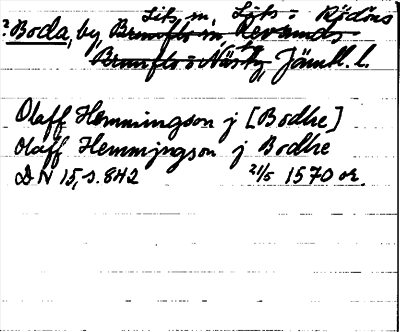 Lits m. Lits o Rödöns
? Boda, by Brunflo m. Revsunds
Brunflo o Näsky, Jämtl. l.
Olaff Hemmingson j [Bodhe]
Olaff Hemmjngson j Bodhe
DN 15, s. 842 21/5 1570 or.